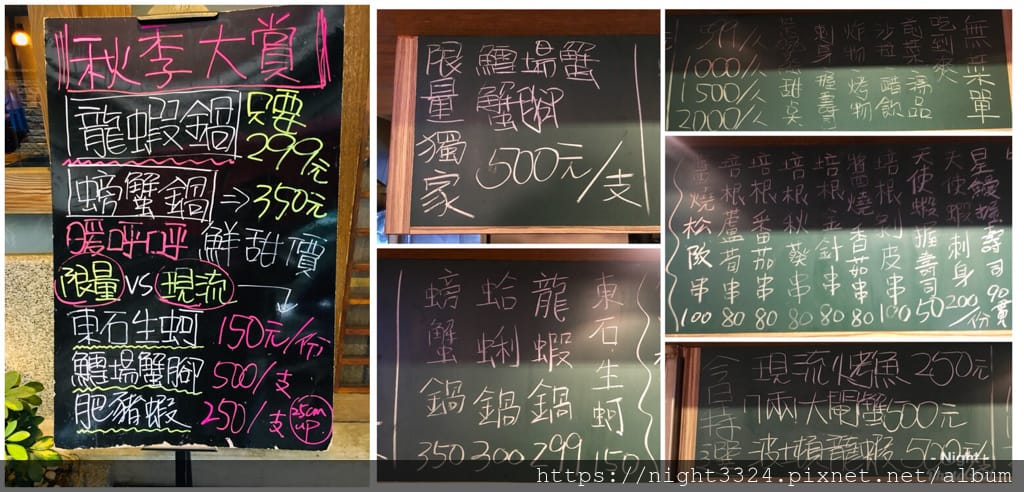 秋季大賞
龍蝦鍋 只要
299元
螃蟹鍋 ⇒ 350元
暖呼呼 鮮甜價
限量 VS 現流
東石生蚵 150元/份
鱈場蟹腳 500/支
肥豬蝦 250/支 25cm up
限量獨家
鱈場蟹
蟹腳
500元/支
東石生蚵 150
龍蝦鍋 299
蛤蜊鍋 300
螃蟹鍋 350
無菜單
吃到爽
前菜 湯品
沙拉 醋飲
炸物 烤物
刺身 握壽司
甜点
1000/人
1500/人
2000/人
星鰻握壽司 90貫
天使蝦刺身 200/份
天使蝦握壽司 50
培根剥皮串 100
醬燒香茹串 80
培根金針串 80
培根秋葵串 80
培根番茄串 80
培根蘆荀串 80
燒松阪串 100
今日特選
現流烤魚 250元
7兩大閘蟹 500元
波士頓龍蝦 500元
- Night +
https://night3324.pixnet.net/album